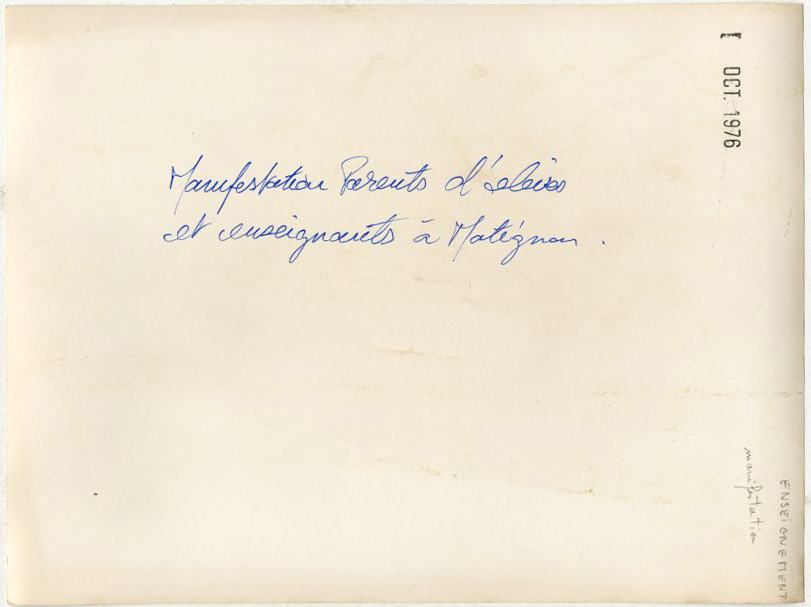 Manifestation Parents d'élèves
et enseignants à Matignon.
OCT. 1976
manifestation
ENSEIGNEMENT